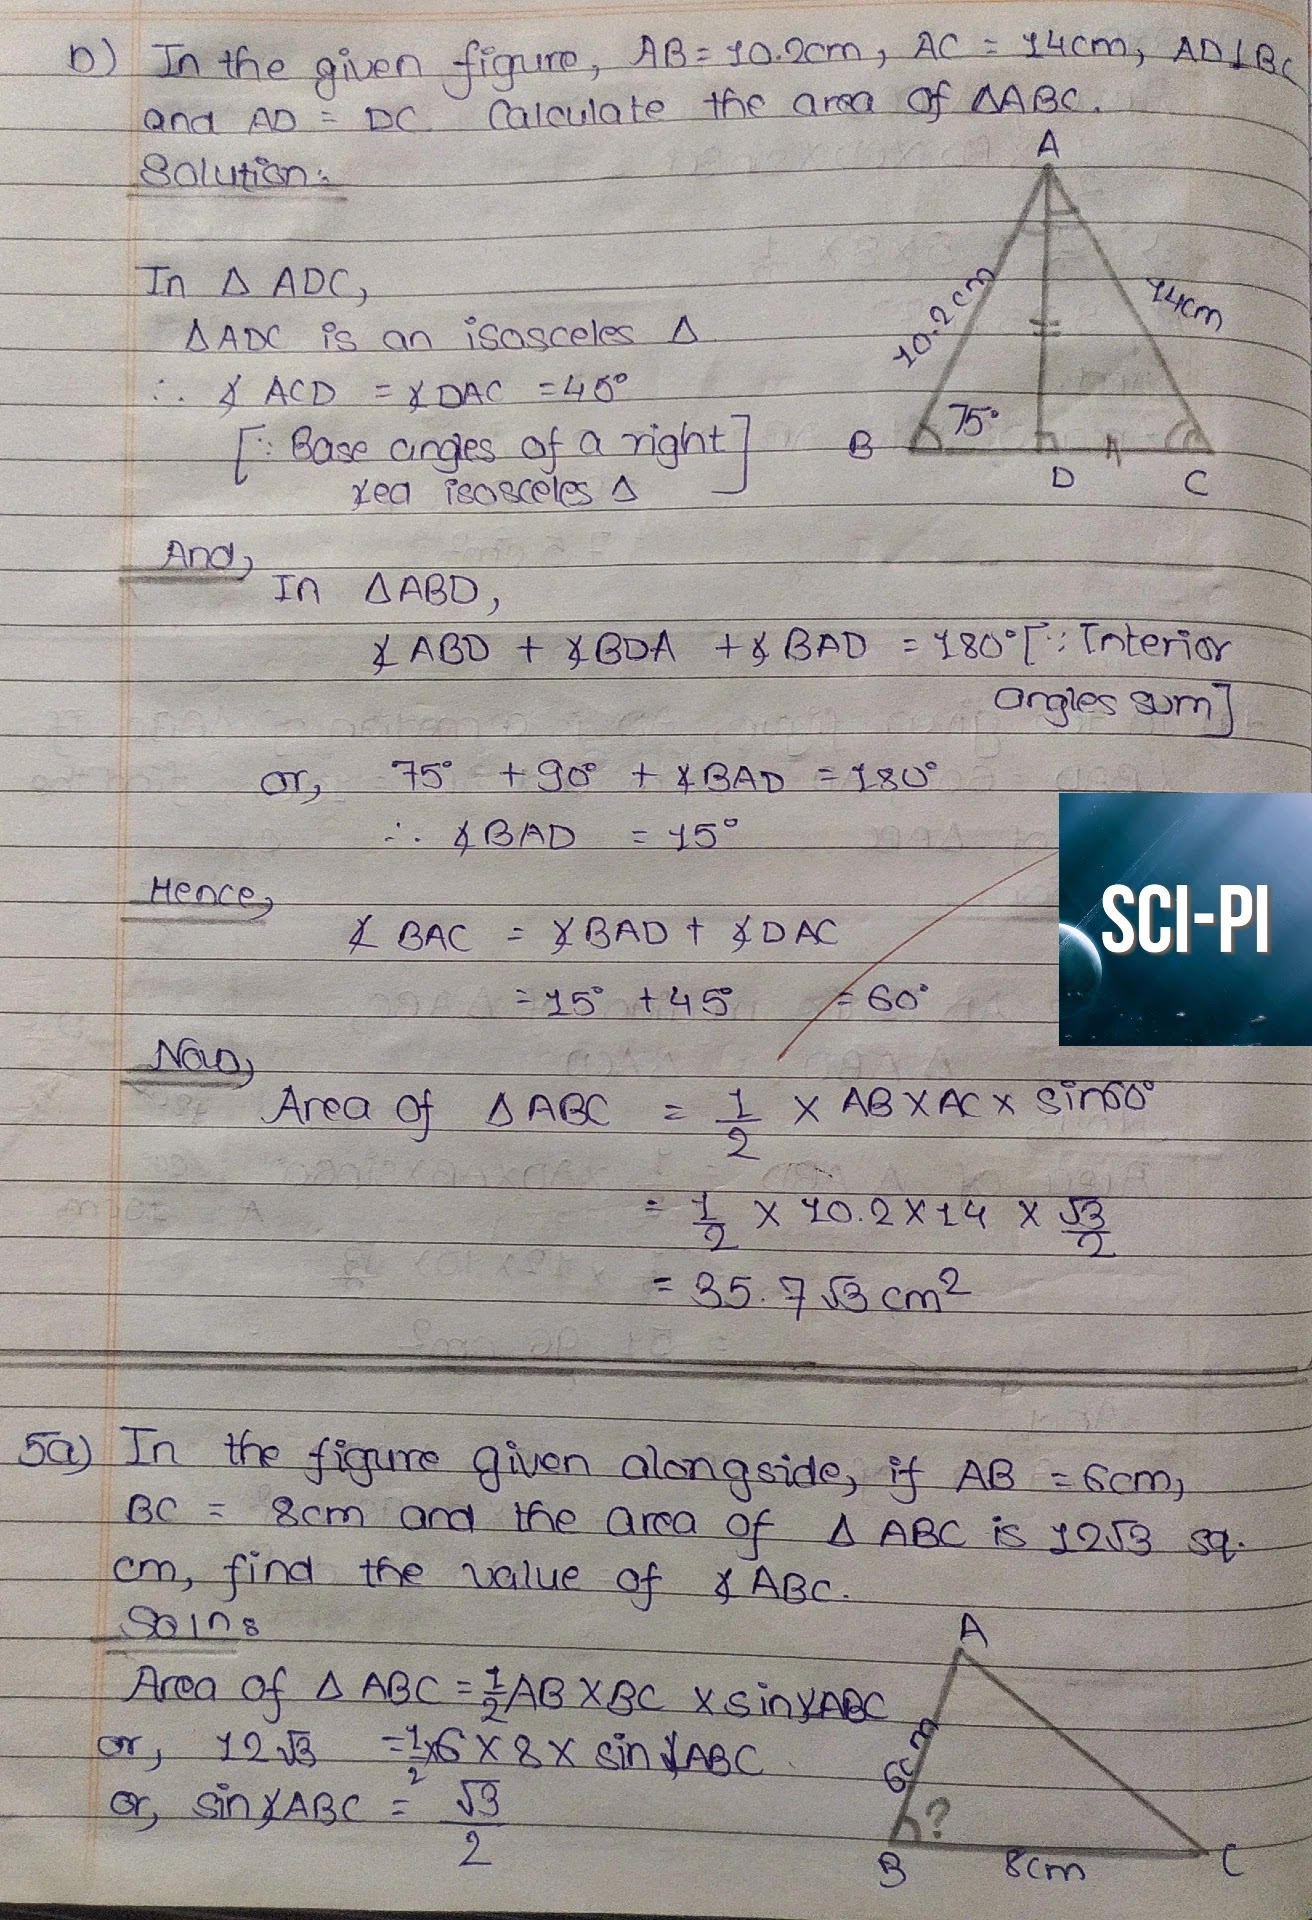 b) In the given figure, AB = 10.2cm, AC = 14cm, AD⊥BC
and AD = DC. Calculate the area of ΔABC.
Solution:
A
In Δ ADC,
10.2cm
14cm
ΔADC is an isosceles Δ
∴ ∡ ACD = ∡DAC = 45°
75°
[∵ Base angles of a right
∡ed isosceles Δ]
B
D
C
And,
In ΔABD,
∡ABD + ∡BDA + ∡BAD = 180° [∵ Interior
angles sum]
or, 75° + 90° + ∡BAD = 180°
∴ ∡BAD = 15°
Hence,
SCI-PI
∡ BAC = ∡BAD + ∡DAC
= 15° + 45° = 60°
Now,
Area of ΔABC = 1/2 × AB × AC × sin60°
= 1/2 × 10.2 × 14 × √3/2
= 35.7√3 cm²
5a) In the figure given alongside, if AB = 6cm,
BC = 8cm and the area of Δ ABC is 12√3 sq.
cm, find the value of ∡ABC.
Soln:
A
Area of Δ ABC = 1/2 AB × BC × sin∡ABC
or, 12√3 = 1/2 × 6 × 8 × sin∡ABC
6cm
or, sin∡ABC = √3/2
?
B
8cm
C